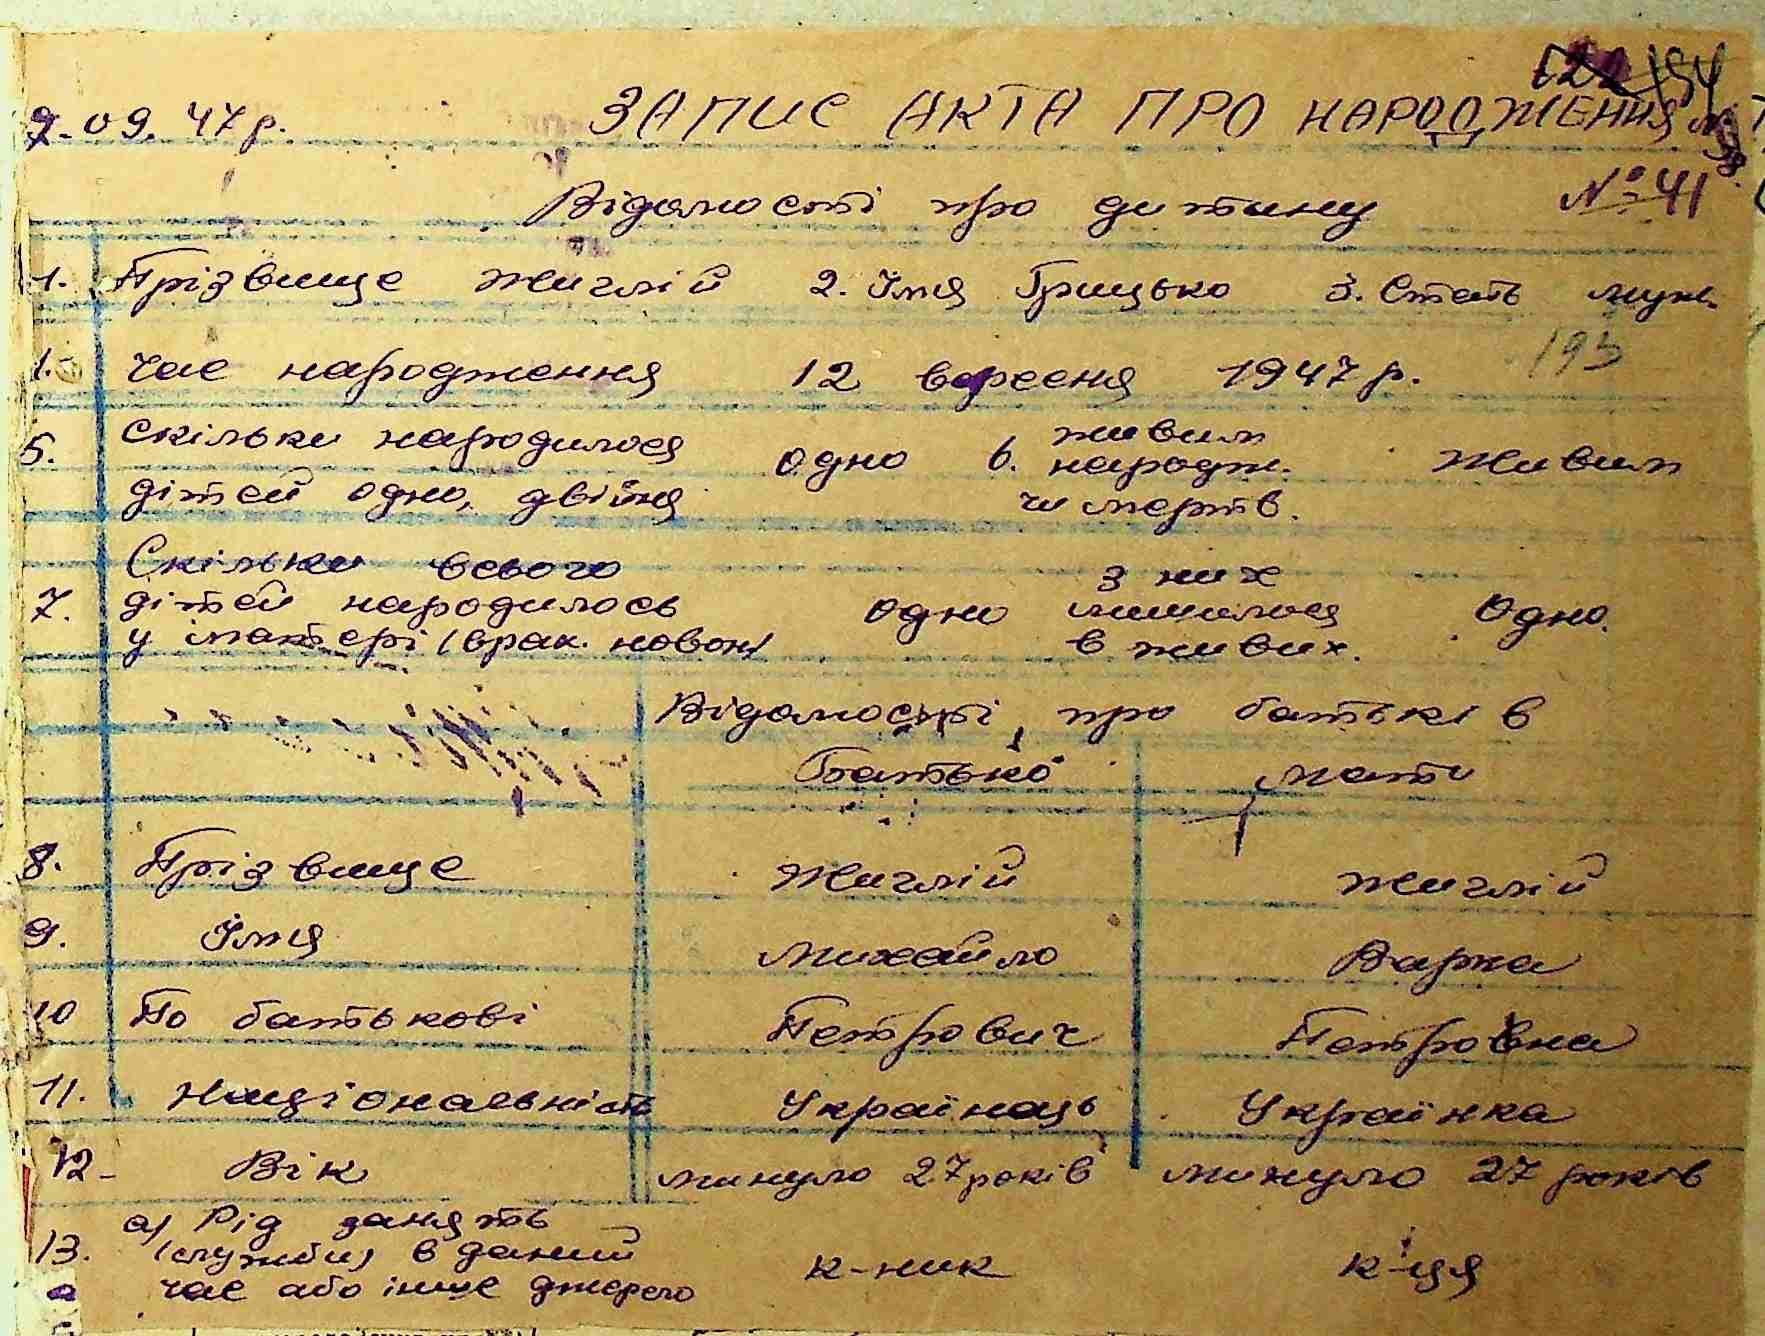 154
9.09.47р. ЗАПИС АКТА ПРО НАРОДЖЕННЯ
Відомості про дитину №41
1. Прізвище Жиглій 2. Імя Грицько 3. Стать муж.
193
час народження 12 вересня 1947р.
5. скільки народилося дітей одно, двійня одно 6. живим народж. чи мертв. живим
7. Скільки всього дітей народилось у матері (врах. новон) одно з них лишилося в живих. Одно.
Відомості про батьків
Батько мати
8. Прізвище Жиглій Жиглій
9. Імя Михайло Варка
10 По батькові Петрович Петровна
11. Національність Українець Українка
12- Вік минуло 27 років минуло 27 років
13. а) Рід занять (служби) в даний час або інше джерело к-ник к-ця